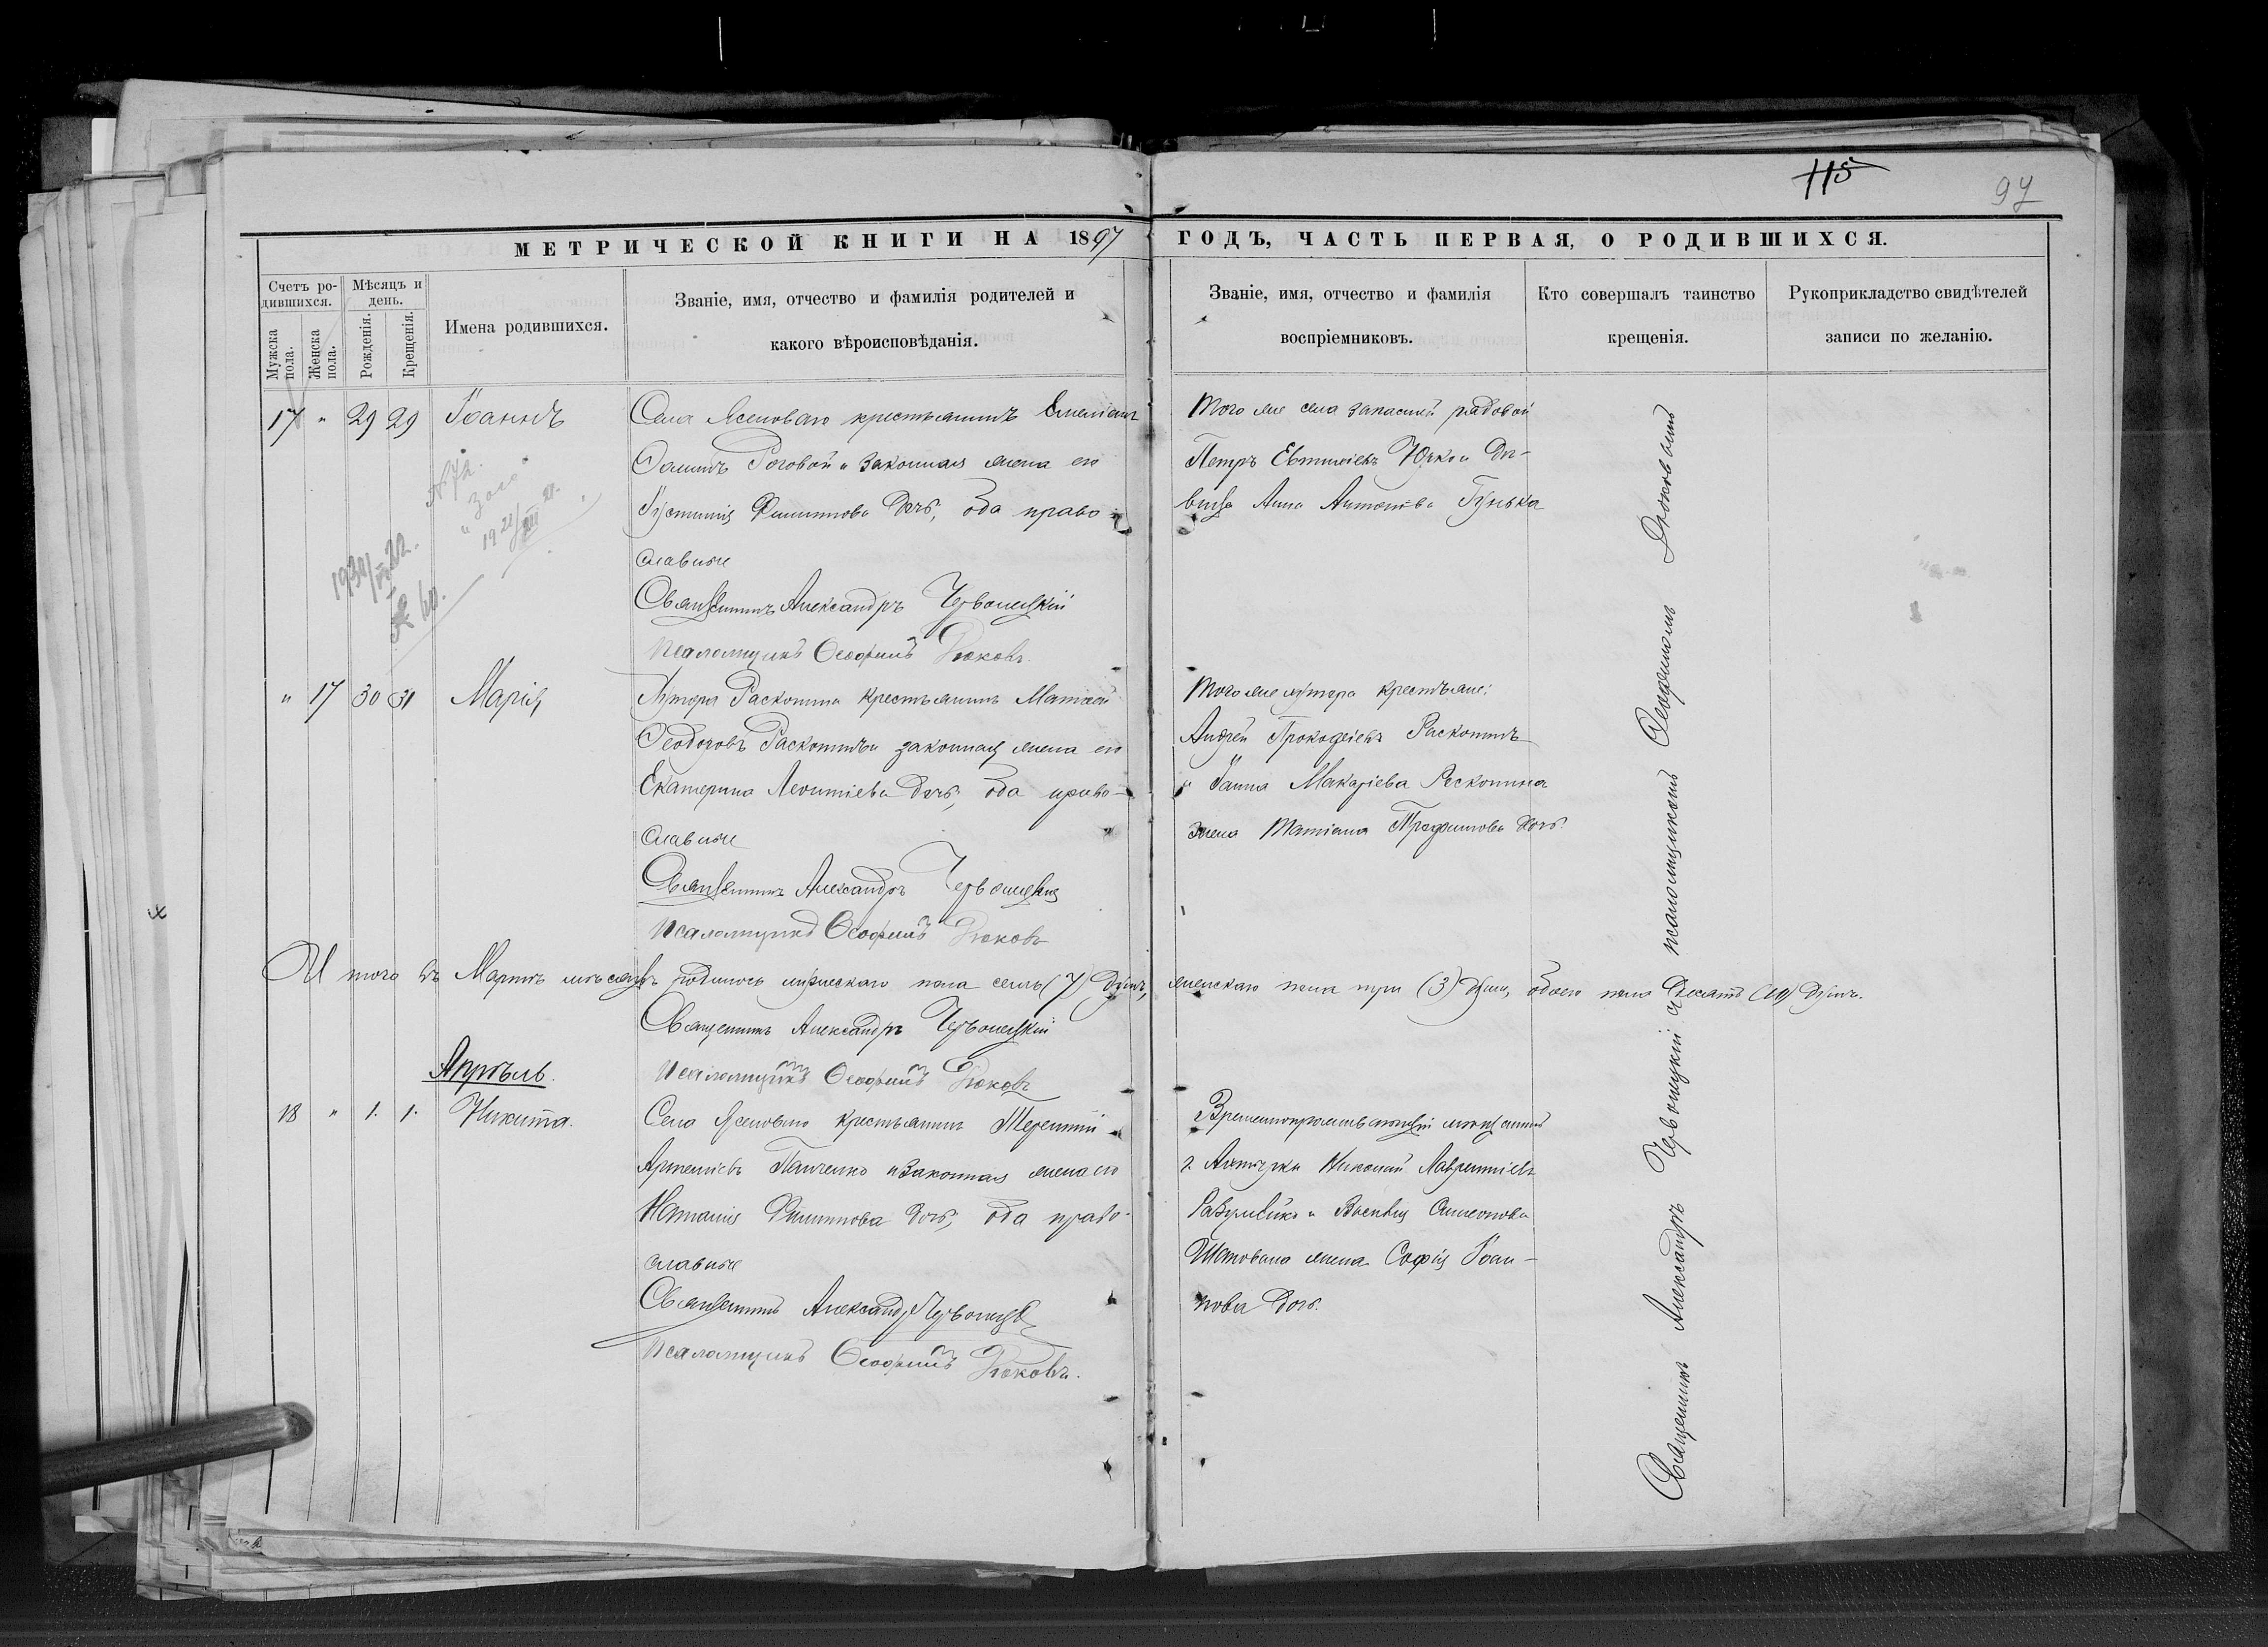 115
97
МЕТРИЧЕСКОЙ КНИГИ НА 1897 ГОДЪ, ЧАСТЬ ПЕРВАЯ, О РОДИВШИХСЯ.
Счетъ родившихся.
Мужска пола.
Женска пола.
Мѣсяцъ и день.
Рожденія.
Крещенія.
Имена родившихся.
Званіе, имя, отчество и фамилія родителей и
какого вѣроисповѣданія.
Званіе, имя, отчество и фамилія
воспріемниковъ.
Кто совершалъ таинство
крещенія.
Рукоприкладство свидѣтелей
записи по желанію.
17 " 29 29 Іоаннъ
Села Ясеноваго крестьянинъ Емеліанъ
Роговой и законная жена его
Іустинія Филиппова дочь, оба право-
славные
Священникъ Александръ Червонецкій
Псаломщикъ Ѳеофилъ Дюковъ.
Того же села запасный рядовой
Петръ Евтихіевъ и дѣ-
вица Анна Антонова Гунька
1930/
1921/VIII
" 17 30 31 Марія
Хутора Раскопина крестьянинъ Матѳей
Ѳеодоровъ Раскопинъ и законная жена его
Екатерина Леонтіева дочь, оба право-
славные
Священникъ Александръ Червонецкій
Псаломщикъ Ѳеофилъ Дюковъ
Того же хутора крестьяне:
Андрей Прокофіевъ Раскопинъ
и Макаріева Раскопина
жена Татіана Трофимова дочь.
И того въ Мартѣ мѣсяцѣ родилось мужескаго пола семь (7) душъ, женскаго пола три (3) души, обоего пола десять (10) душъ.
Священникъ Александръ Червонецкій
Псаломщикъ Ѳеофилъ Дюковъ
Апрѣль.
18 " 1. 1. Никита.
Села Ясеноваго крестьянинъ Терентій
Артеміевъ Панченко и законная жена его
Наталія Филиппова дочь, оба право-
славные
Священникъ Александръ Червонецкій
Псаломщикъ Ѳеофилъ Дюковъ.
Временнопроживающій мѣщанинъ
г. Ахтырки Николай Лаврентіевъ
и Симеонова
жена Софія Іоан-
нова дочь.
Священникъ Александръ Червонецкій съ псаломщикомъ Ѳеофиломъ Дюковымъ